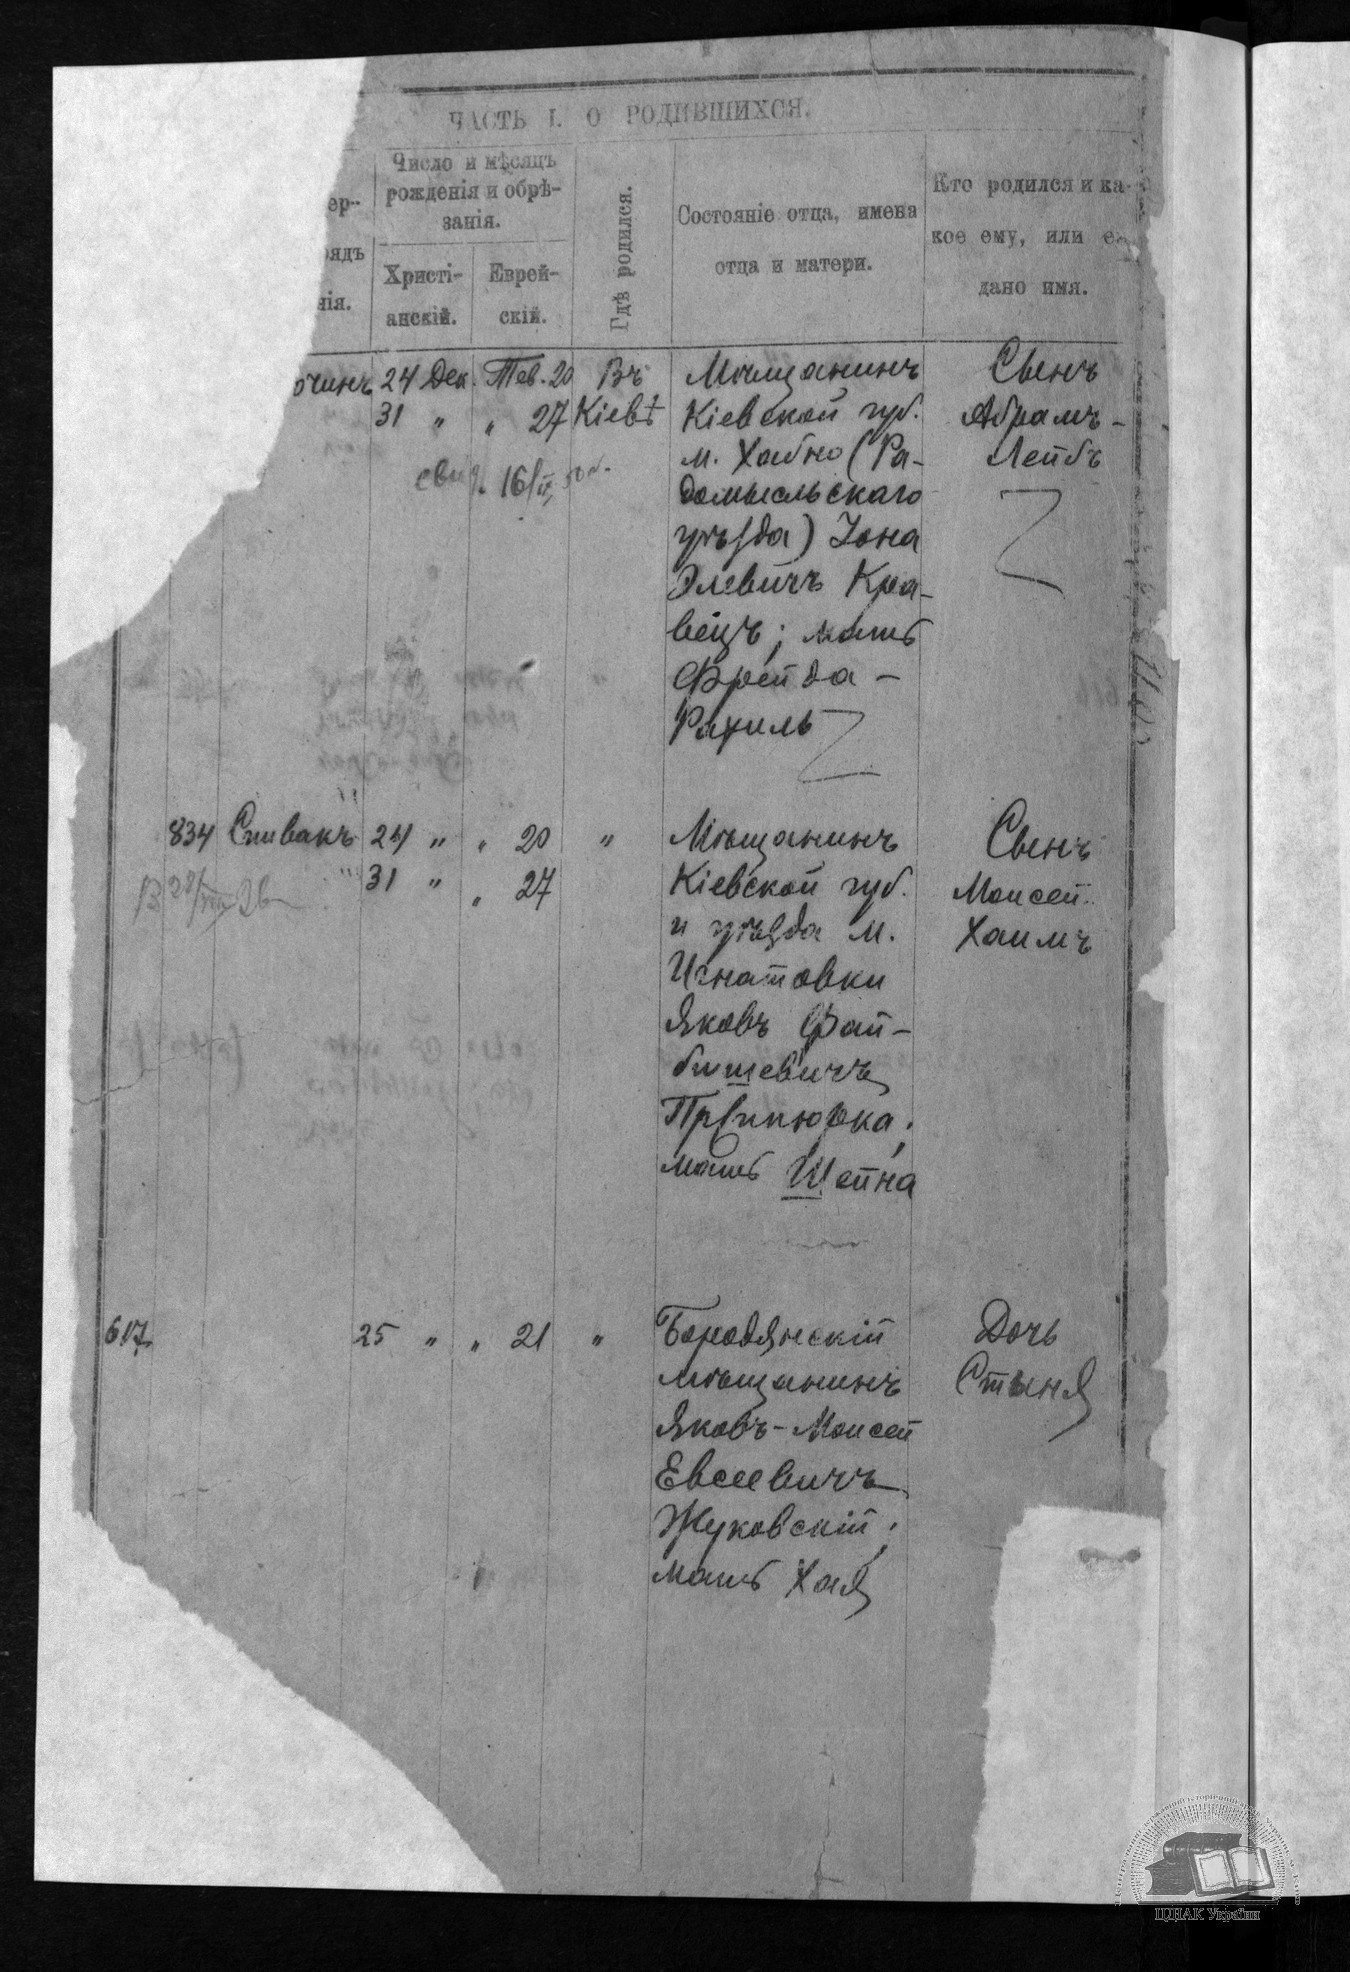 ЧАСТЬ I. О РОДИВШИХСЯ.
ер-
рядъ
нія.
Число и мѣсяцъ
рожденія и обрѣ-
занія.
Христі-
анскій.
Еврей-
скій.
Гдѣ родился.
Состояніе отца, имена
отца и матери.
Кто родился и ка-
кое ему, или ей
дано имя.
очинъ 24 Дек. Тев. 20 Въ Мѣщанинъ Сынъ
31 " " 27 Кіевѣ Кіевской губ. Абрамъ-
м. Хабно (Ра- Лейбъ
свид. 16/IX
домысльскаго
уѣзда) Іона
Элевичъ Кра-
вецъ; мать
Фрейда-
Рахиль
834 Спивакъ 24 " " 20 " Мѣщанинъ Сынъ
31 " " 27 Кіевской губ. Моисей-
и уѣзда м. Хаимъ
Игнатовки
Яковъ Фай-
бишевичъ
мать Шейна
617 25 " " 21 " Бородянскій Дочь
мѣщанинъ Стыня
Яковъ-Моисей
Евсеевичъ
Жуковскій;
мать Хая
ЦДІАК України